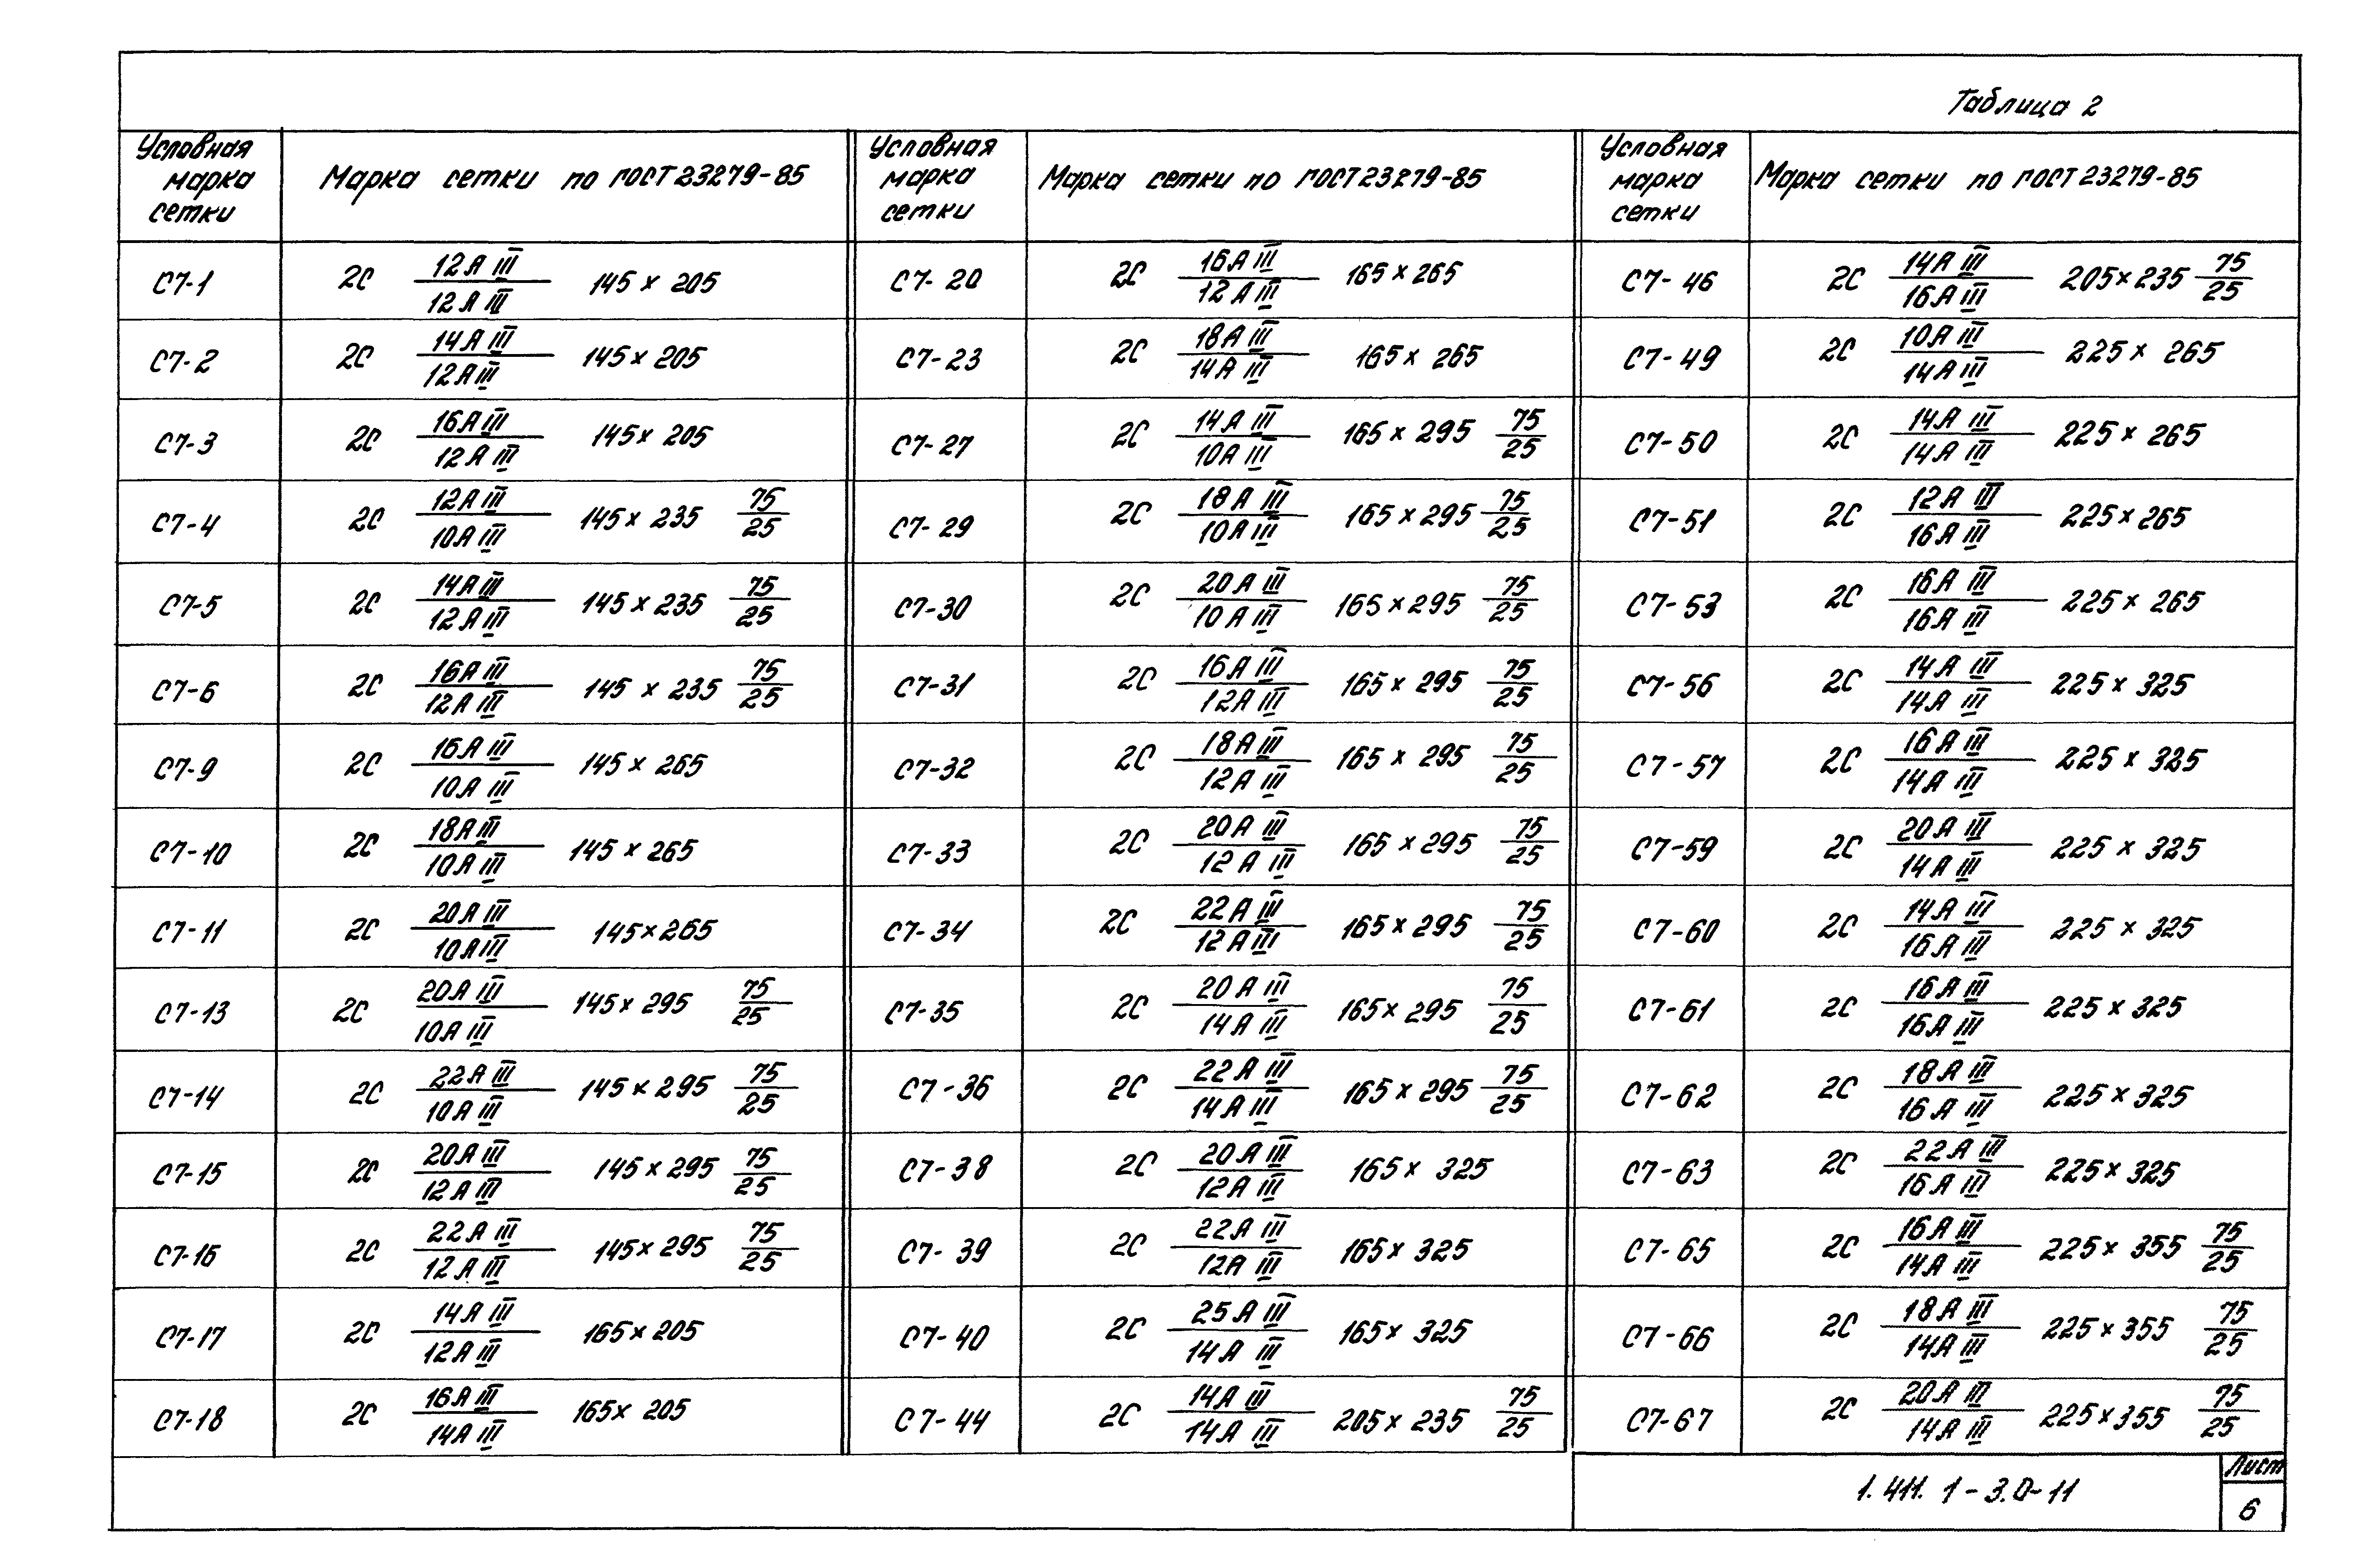 Таблица 2
Условная марка сетки | Марка сетки по ГОСТ 23279-85 | Условная марка сетки | Марка сетки по ГОСТ 23279-85 | Условная марка сетки | Марка сетки по ГОСТ 23279-85
С7-1 | 2С 12АIII/12АIII 145×205 | С7-20 | 2С 16АIII/12АIII 165×265 | С7-46 | 2С 14АIII/16АIII 205×235 75/25
С7-2 | 2С 14АIII/12АIII 145×205 | С7-23 | 2С 18АIII/14АIII 165×265 | С7-49 | 2С 10АIII/14АIII 225×265
С7-3 | 2С 16АIII/12АIII 145×205 | С7-27 | 2С 14АIII/10АIII 165×295 75/25 | С7-50 | 2С 14АIII/14АIII 225×265
С7-4 | 2С 12АIII/10АIII 145×235 75/25 | С7-29 | 2С 18АIII/10АIII 165×295 75/25 | С7-51 | 2С 12АIII/16АIII 225×265
С7-5 | 2С 14АIII/12АIII 145×235 75/25 | С7-30 | 2С 20АIII/10АIII 165×295 75/25 | С7-53 | 2С 16АIII/16АIII 225×265
С7-6 | 2С 16АIII/12АIII 145×235 75/25 | С7-31 | 2С 16АIII/12АIII 165×295 75/25 | С7-56 | 2С 14АIII/14АIII 225×325
С7-9 | 2С 16АIII/10АIII 145×265 | С7-32 | 2С 18АIII/12АIII 165×295 75/25 | С7-57 | 2С 16АIII/14АIII 225×325
С7-10 | 2С 18АIII/10АIII 145×265 | С7-33 | 2С 20АIII/12АIII 165×295 75/25 | С7-59 | 2С 20АIII/14АIII 225×325
С7-11 | 2С 20АIII/10АIII 145×265 | С7-34 | 2С 22АIII/12АIII 165×295 75/25 | С7-60 | 2С 14АIII/16АIII 225×325
С7-13 | 2С 20АIII/10АIII 145×295 75/25 | С7-35 | 2С 20АIII/14АIII 165×295 75/25 | С7-61 | 2С 16АIII/16АIII 225×325
С7-14 | 2С 22АIII/10АIII 145×295 75/25 | С7-36 | 2С 22АIII/14АIII 165×295 75/25 | С7-62 | 2С 18АIII/16АIII 225×325
С7-15 | 2С 20АIII/12АIII 145×295 75/25 | С7-38 | 2С 20АIII/12АIII 165×325 | С7-63 | 2С 22АIII/16АIII 225×325
С7-16 | 2С 22АIII/12АIII 145×295 75/25 | С7-39 | 2С 22АIII/12АIII 165×325 | С7-65 | 2С 16АIII/14АIII 225×355 75/25
С7-17 | 2С 14АIII/12АIII 165×205 | С7-40 | 2С 25АIII/14АIII 165×325 | С7-66 | 2С 18АIII/14АIII 225×355 75/25
С7-18 | 2С 16АIII/14АIII 165×205 | С7-44 | 2С 14АIII/14АIII 205×235 75/25 | С7-67 | 2С 20АIII/14АIII 225×355 75/25
1.411.1-3.0-11
Лист
6